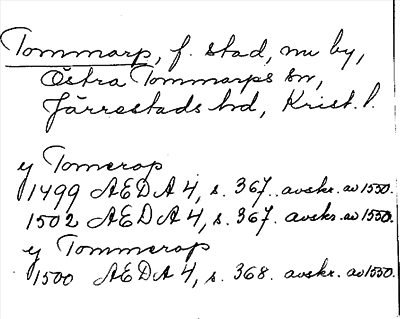 Tommarp, f. stad, nu by,
Östra Tommarps sn,
Järrestads hd, Krist. l.
y Tomerop
1499 AEDA 4, s. 367. avskr. av 1550.
1502 AEDA 4, s. 367. avskr. av 1550.
y Tommerop
1500 AEDA 4, s. 368. avskr. av 1550.